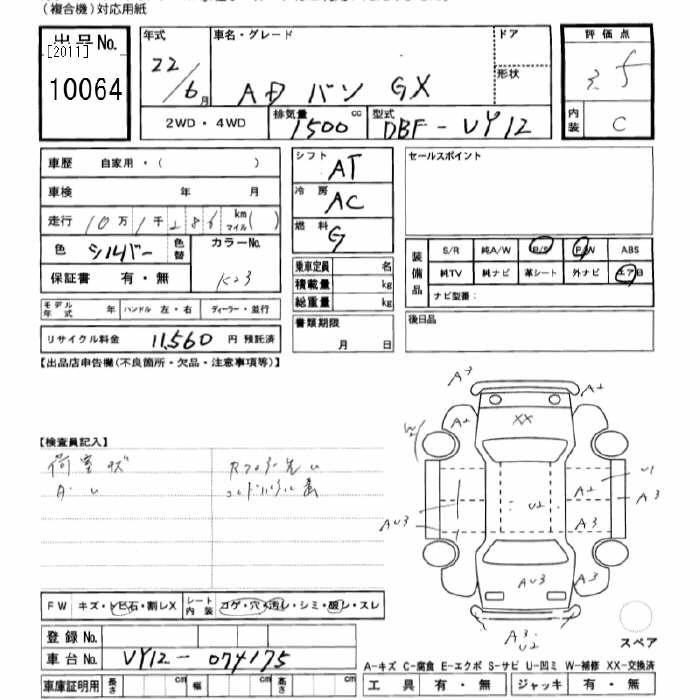 （複合機）対応用紙
出品 No.
[2011]
10064
年式
22/6月
車名・グレード
ADバン GX
ドア
形状
2WD・4WD
排気量
1500 cc
型式
DBF-VY12
評価点
3.5
内装
C
車歴 自家用・( )
車検 年 月
走行 10万1千286 km マイル( )
色 シルバー 色替 カラーNo. K23
保証書 有・無
モデル年式 年 ハンドル 左・右 ディーラー・並行
リサイクル料金 11,560 円 預託済
シフト AT
冷房 AC
燃料 G
乗車定員 名
積載量 kg
総重量 kg
書類期限
月 日
セールスポイント
装備品
S/R 純A/W P/S P/W ABS
純TV 純ナビ 革シート 外ナビ エアB
ナビ型番：
後日品
【出品店申告欄(不良箇所・欠品・注意事項等)】
【検査員記入】
荷室ズ
A3
A2
A2
XX
W2
U1
A2
A3
U2
AU3
A3
AU3
A3
A3
U2
スペア
FW キズ・トビ石・割レX シート内装 コゲ・穴・汚レ・シミ・破レ・スレ
登録 No.
車台 No. VY12-074175
車庫証明用 長さ cm 幅 cm 高さ cm
A-キズ C-腐食 E-エクボ S-サビ U-凹ミ W-補修 XX-交換済
工具 有・無 ジャッキ 有・無